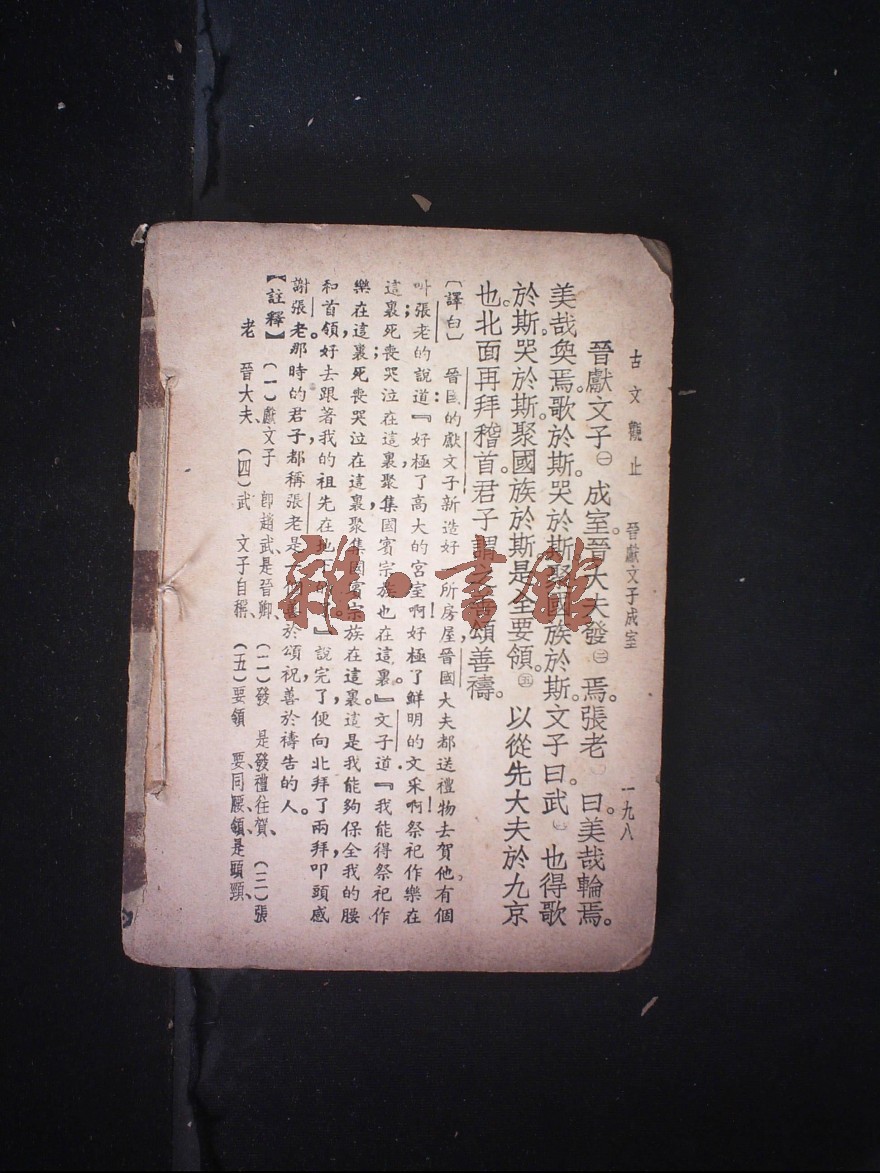 古文觀止 晉獻文子成室 一九八
晉獻文子㊀成室。晉大夫發㊁焉。張老 曰。美哉輪焉。
美哉奐焉。歌於斯。哭於斯。聚國族於斯。文子曰。武 也得歌
於斯。哭於斯。聚國族於斯。是全要領。㊄以從先大夫於九京
也。北面再拜稽首。君子謂之善頌善禱。
〔譯白〕 晉國的獻文子新造好 所房屋,晉國大夫都送禮物去賀他。有個
叫張老的說道:『好極了高大的宮室啊!好極了鮮明的文采啊!祭祀作樂在
這裏;死喪哭泣在這裏,聚集國賓宗族也在這裏。』文子道:『我能得祭祀作
樂在這裏,死喪哭泣在這裏,聚集國賓宗族在這裏,這是我能夠保全我的腰
和首領,好去跟著我的祖先在地 』說完了,便向北拜了兩拜,叩頭感
謝張老。那時的君子,都稱張老是 善於頌祝,善於禱告的人。
【註釋】 (一)獻文子 卽趙武、是晉卿、 (二)發 是發禮往賀、 (三)張
老 晉大夫、 (四)武 文子自稱、 (五)要領 要、同腰、領、是頭頸、
雜·書館